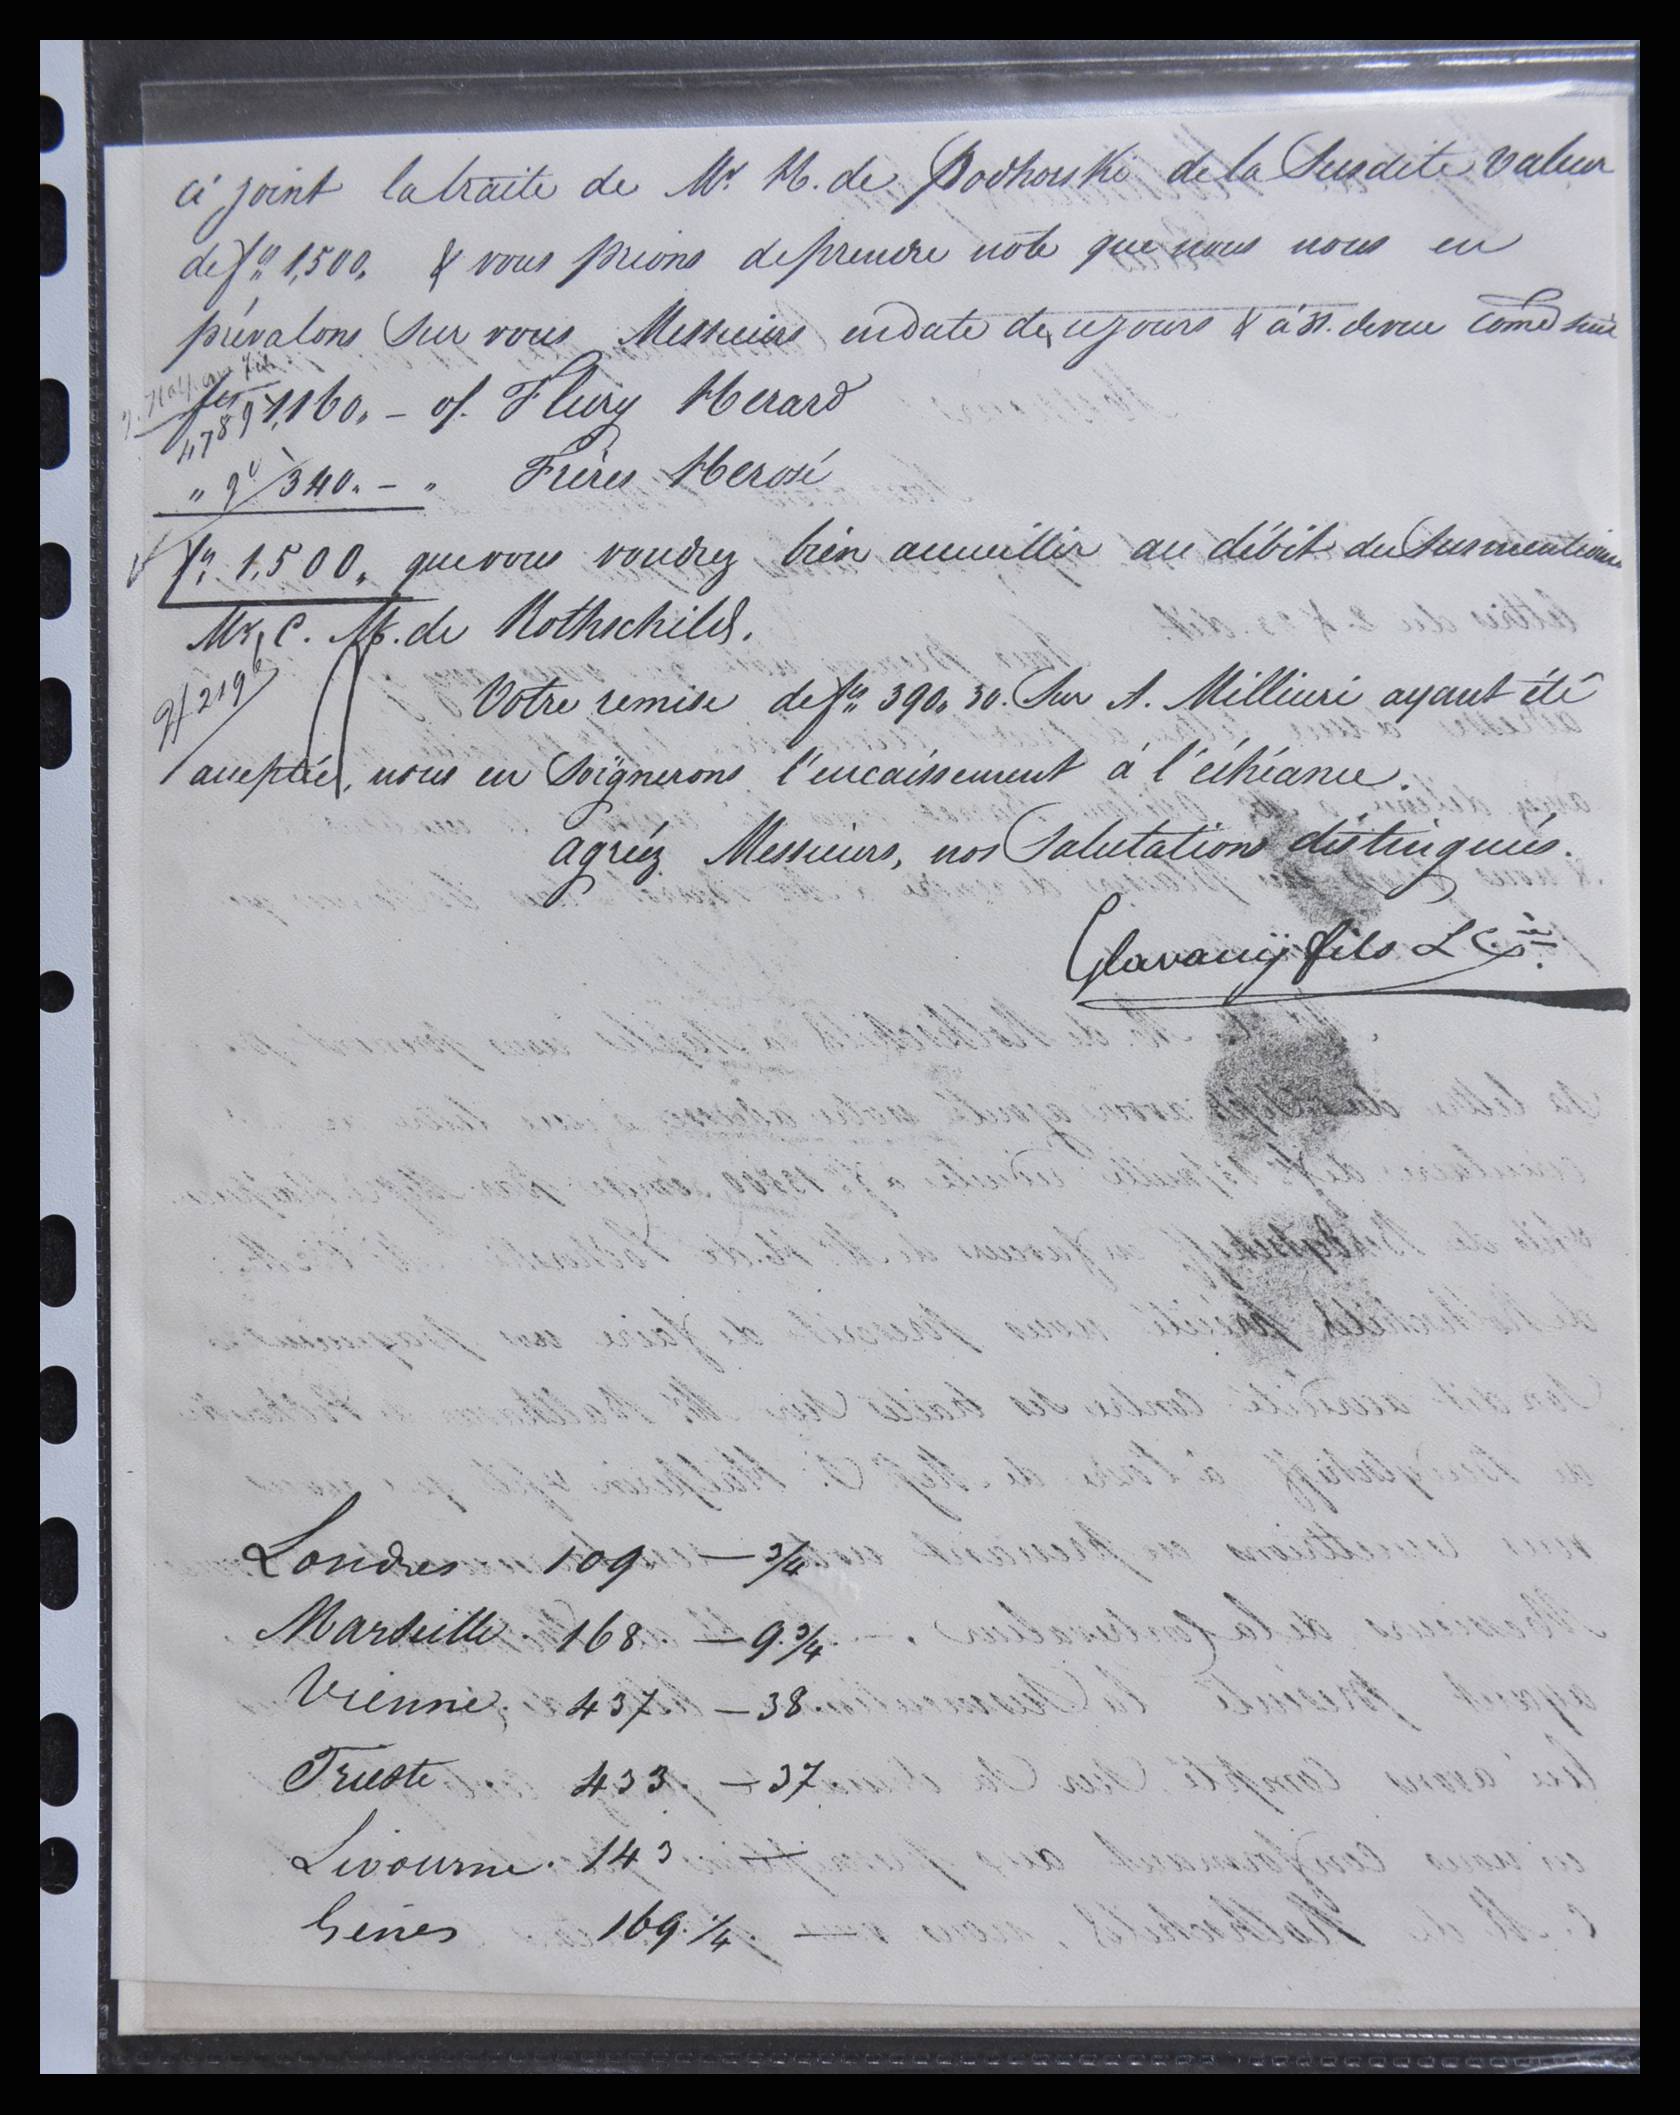 ci joint la traite de Mr. H. de Podhorski de la Susdite Valeur
de fcs 1,500, & vous prions de prendre note que nous nous en
prévalons Sur vous Messieurs en date de ce jours & à 31. de vue Come suit
fcs 1,160,- o/. Flury Herard
4789
" 340.- " Frères Herosé
fcs 1,500, que vous voudrez bien accueillir au débit du Susmentionné
Mr. C. M. de Rothschild.
2196
Votre remise de fcs 390,30. Sur A. Millieuri ayant été
acceptée, nous en Soignerons l'encaissement à l'échéance.
agréez Messieurs, nos Salutations distingués.
Glavany fils & Cie.
Londres 109 — 3/4
Marseille. 168. — 9.3/4.
Vienne. 437 — 38.
Trieste 433. — 37
Livourne. 143 —
Gênes 169.1/4. —